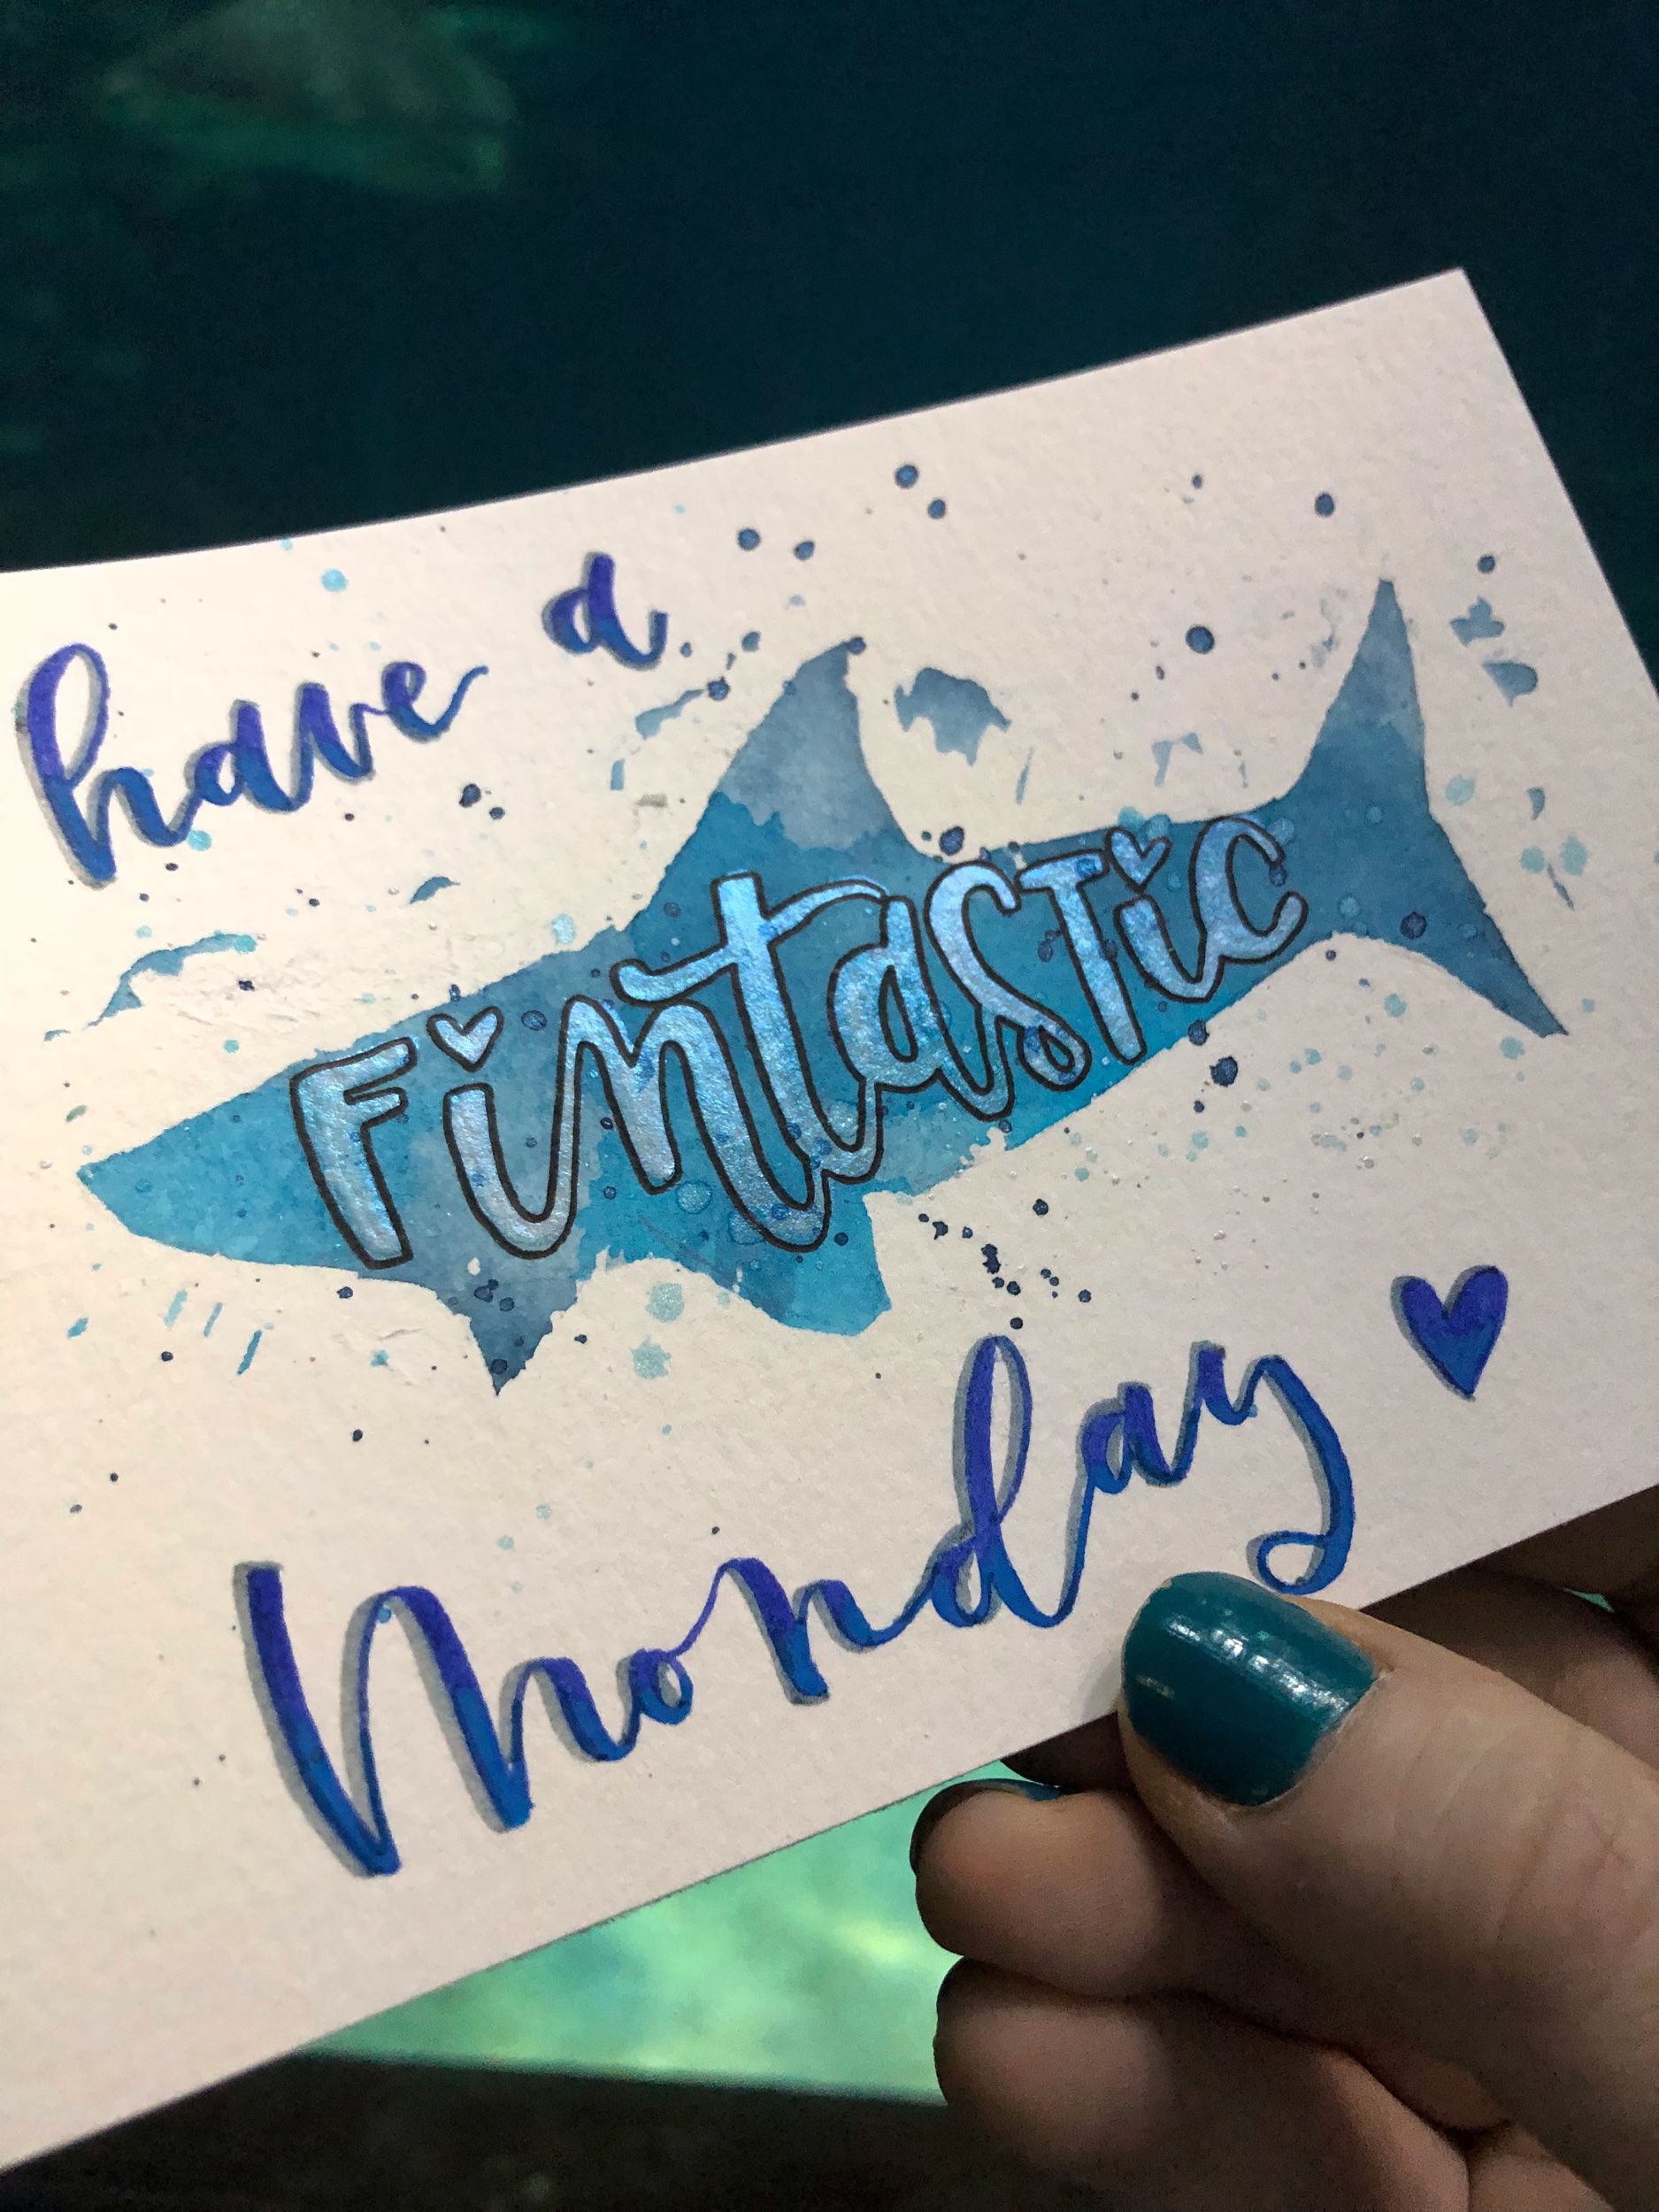 have a
Fintastic
Monday